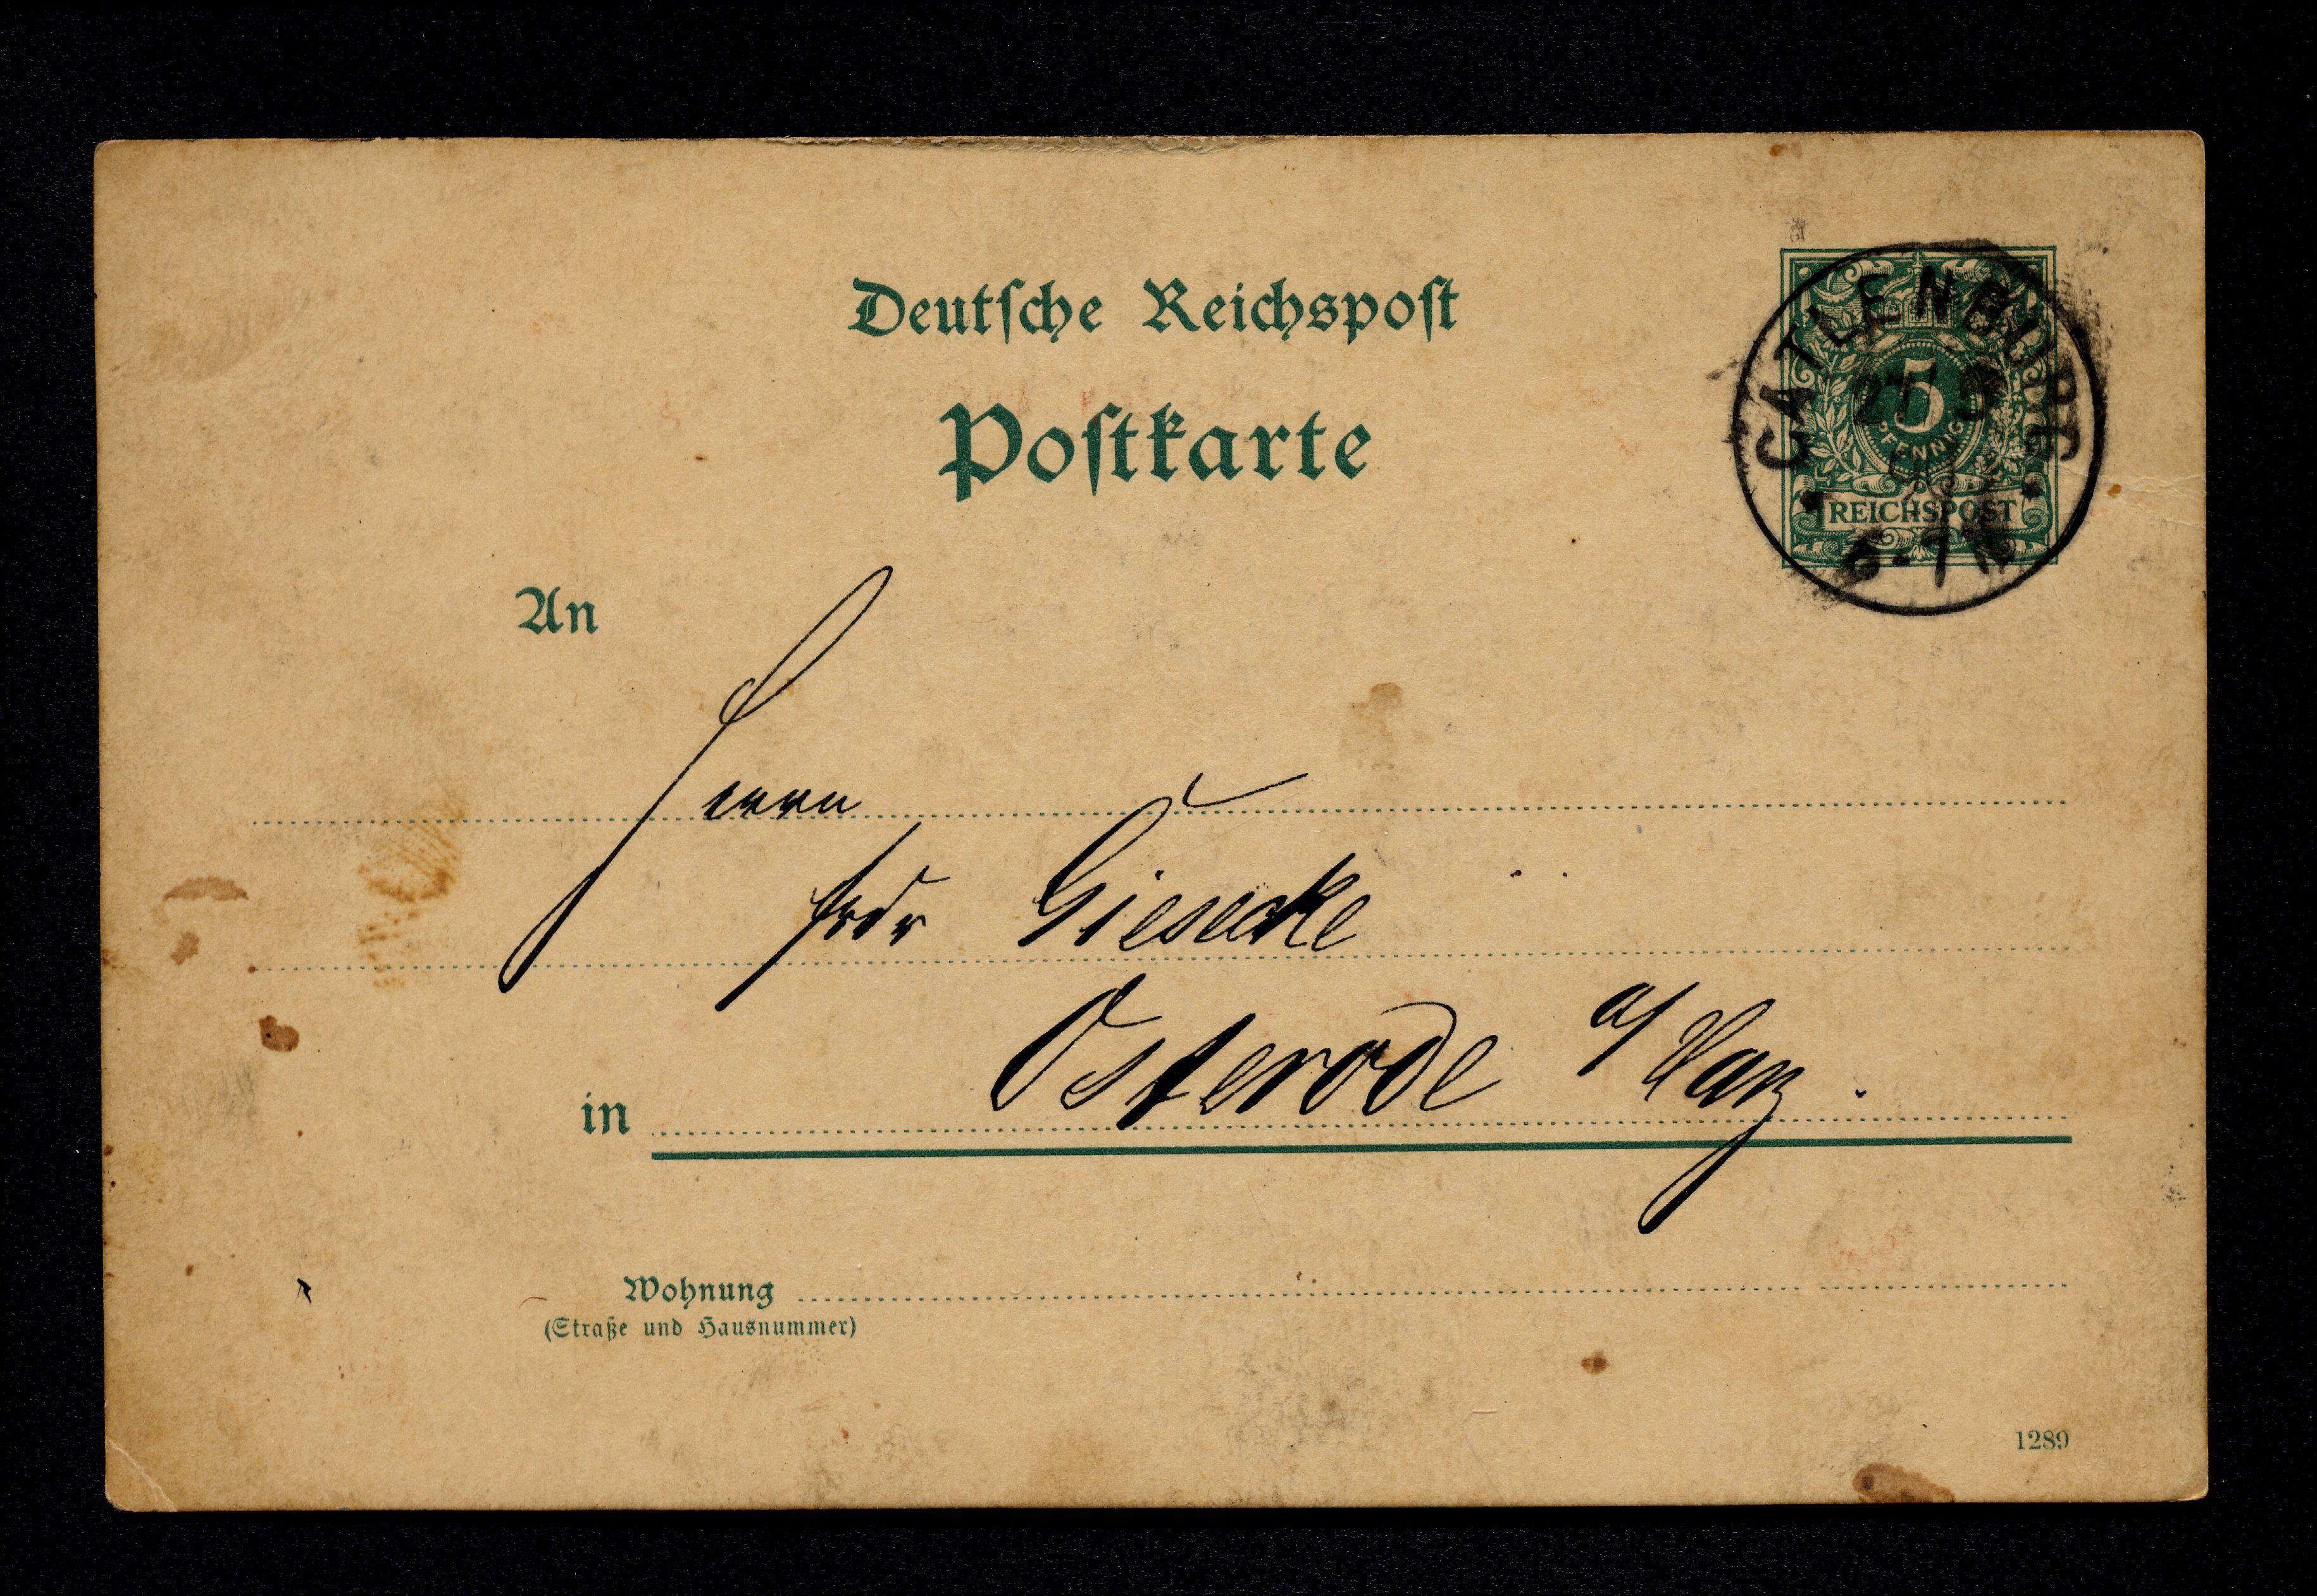 Deutsche Reichspost
Postkarte
CATLENBURG
5
PFENNIG
REICHSPOST
6-7 N
An
Herrn
Frdr Giesecke
in Osterode a/Harz.
Wohnung
(Straße und Hausnummer)
1289